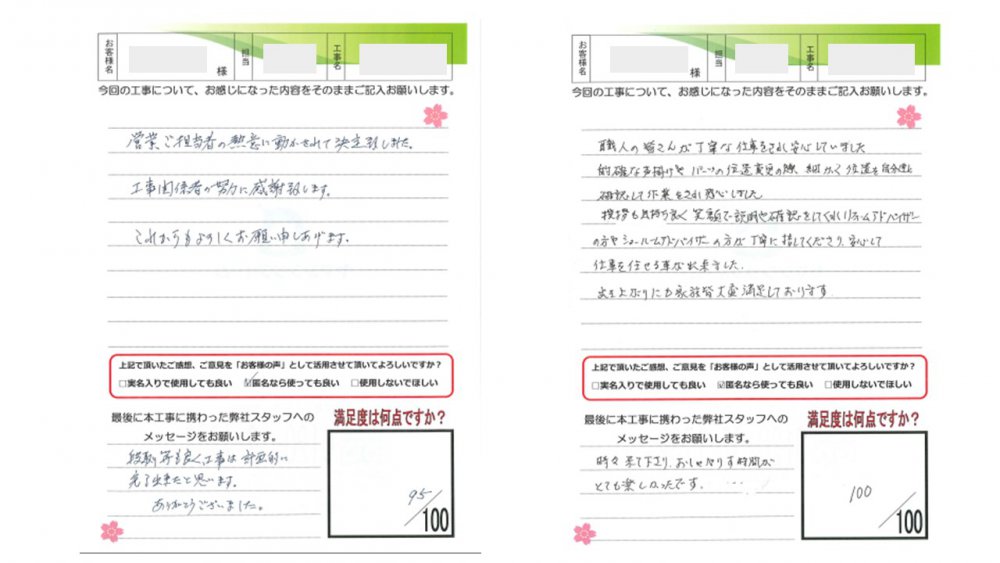 お客様名
様
担当
工事名
今回の工事について、お感じになった内容をそのままご記入お願いします。
営業ご担当者の熱意に動かされて決定致しました。
工事関係者が努力に感謝致します。
これからもよろしくお願い申しあげます。
上記で頂いたご感想、ご意見を「お客様の声」として活用させて頂いてよろしいですか？
□実名入りで使用しても良い ☑匿名なら使っても良い □使用しないでほしい
最後に本工事に携わった弊社スタッフへの
メッセージをお願いします。
段取り等も良く、工事は計画的に
完了出来たと思います。
ありがとうございました。
満足度は何点ですか？
95/100
お客様名
様
担当
工事名
今回の工事について、お感じになった内容をそのままご記入お願いします。
職人の皆さんが丁寧な仕事をされ安心していました
的確な声掛けやパーツの位置変更の際、細かく位置を自分達
確認して作業をされ感心しました
挨拶も気持ち良く笑顔で説明や確認をしてくれリフォームアドバイザー
の方やショールームアドバイザーの方が丁寧に接してくださり、安心して
仕事を任せる事が出来ました。
出き上がりにも家族皆大変満足しております
上記で頂いたご感想、ご意見を「お客様の声」として活用させて頂いてよろしいですか？
□実名入りで使用しても良い ☑匿名なら使っても良い □使用しないでほしい
最後に本工事に携わった弊社スタッフへの
メッセージをお願いします。
時々来て下さり、おしゃべりす時間が
とても楽しかったです。
満足度は何点ですか？
100/100